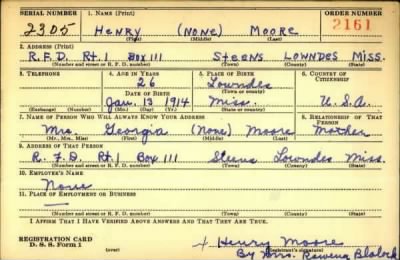 SERIAL NUMBER 1. NAME (Print) ORDER NUMBER
2305 HENRY (NONE) MOORE 2161
(First) (Middle) (Last)
2. ADDRESS (Print)
R.F.D. Rt. 1 Box 111 STEENS LOWNDES MISS.
(Number and street or R. F. D. number) (Town) (County) (State)
3. TELEPHONE 4. AGE IN YEARS 5. PLACE OF BIRTH 6. COUNTRY OF CITIZENSHIP
26 Lowndes
DATE OF BIRTH (Town or county)
Jan. 13 1914 Miss. U.S.A.
(Exchange) (Number) (Mo.) (Day) (Yr.) (State or country)
7. NAME OF PERSON WHO WILL ALWAYS KNOW YOUR ADDRESS 8. RELATIONSHIP OF THAT PERSON
Mrs. Georgia (None) Moore Mother
(Mr., Mrs., Miss) (First) (Middle) (Last)
9. ADDRESS OF THAT PERSON
R.F.D. Rt. 1 Box 111 Steens Lowndes Miss.
(Number and street or R. F. D. number) (Town) (County) (State)
10. EMPLOYER'S NAME
None
11. PLACE OF EMPLOYMENT OR BUSINESS
(Number and street or R. F. D. number) (Town) (County) (State)
I AFFIRM THAT I HAVE VERIFIED ABOVE ANSWERS AND THAT THEY ARE TRUE.
REGISTRATION CARD
D. S. S. Form 1 (over) + Henry Moore
(Registrant's signature)
By Mrs. Rowena Blalock